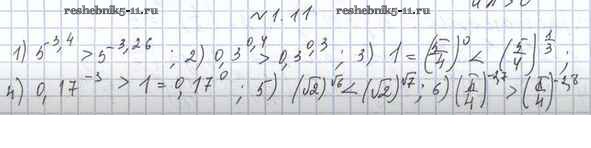 reshebnik5-11.ru № 1.11 www.reshebnik5-11.ru
1) 5^-3,4 > 5^-3,26 ; 2) 0,3^0,4 > 0,3^0,3 ; 3) 1 = (5/4)^0 < (5/4)^1/3 ;
4) 0,17^-3 > 1 = 0,17^0 ; 5) (√2)^√6 < (√2)^√7 ; 6) (π/4)^-2,7 > (π/4)^-2,8